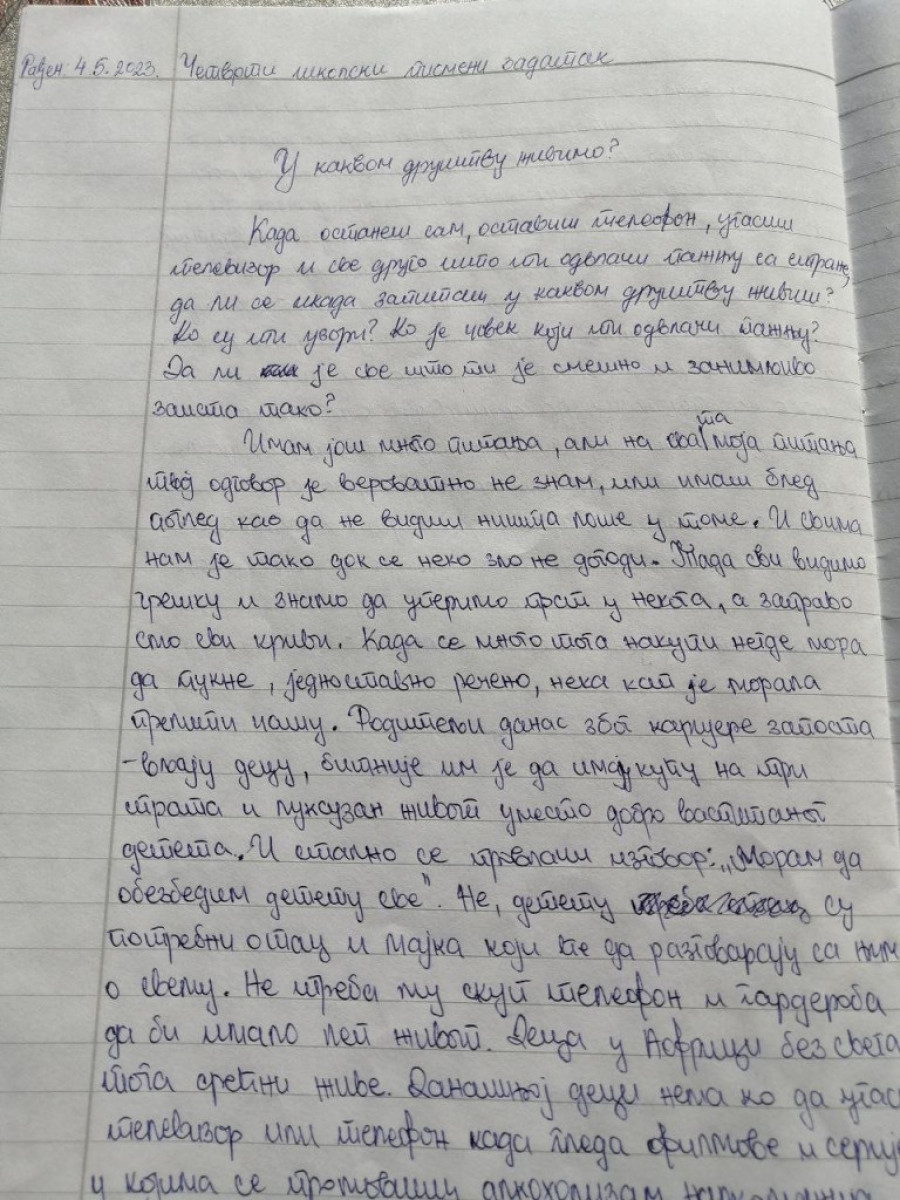 Рађен: 4.5.2023. Четврти школски писмени задатак
У каквом друштву живимо?
Када останеш сам, оставиш телефон, угасиш
телевизор и све друго што ти одвлачи пажњу са стране,
да ли се икада запиташ у каквом друштву живиш?
Ко су ти узори? Ко је човек који ти одвлачи пажњу?
Да ли је све што ти је смешно и занимљиво
заиста тако?
Имам још много питања, али на сва та моја питања
твој одговор је вероватно не знам, или имаш блед
поглед као да не видиш ништа лоше у томе. И свима
нам је тако док се неко зло не догоди. Тада сви видимо
грешку и знамо да уперимо прст у некога, а заправо
смо сви криви. Када се много тога накупи негде мора
да пукне, једноставно речено, нека кап је морала
прелити чашу. Родитељи данас због каријере запоста
-вљају децу, битније им је да имају кућу на три
спрата и луксузан живот уместо добро васпитаног
детета. И стално се провлачи изговор: „Морам да
обезбедим детету све“. Не, детету су
потребни отац и мајка који ће да разговарају са њим
о свему. Не треба му скуп телефон и гардероба
да би имало леп живот. Деца у Африци без свега
тога срећни живе. Данашњој деци нема ко да угаси
телевизор или телефон када гледа филмове и серије
у којима се промовише алкохолизам